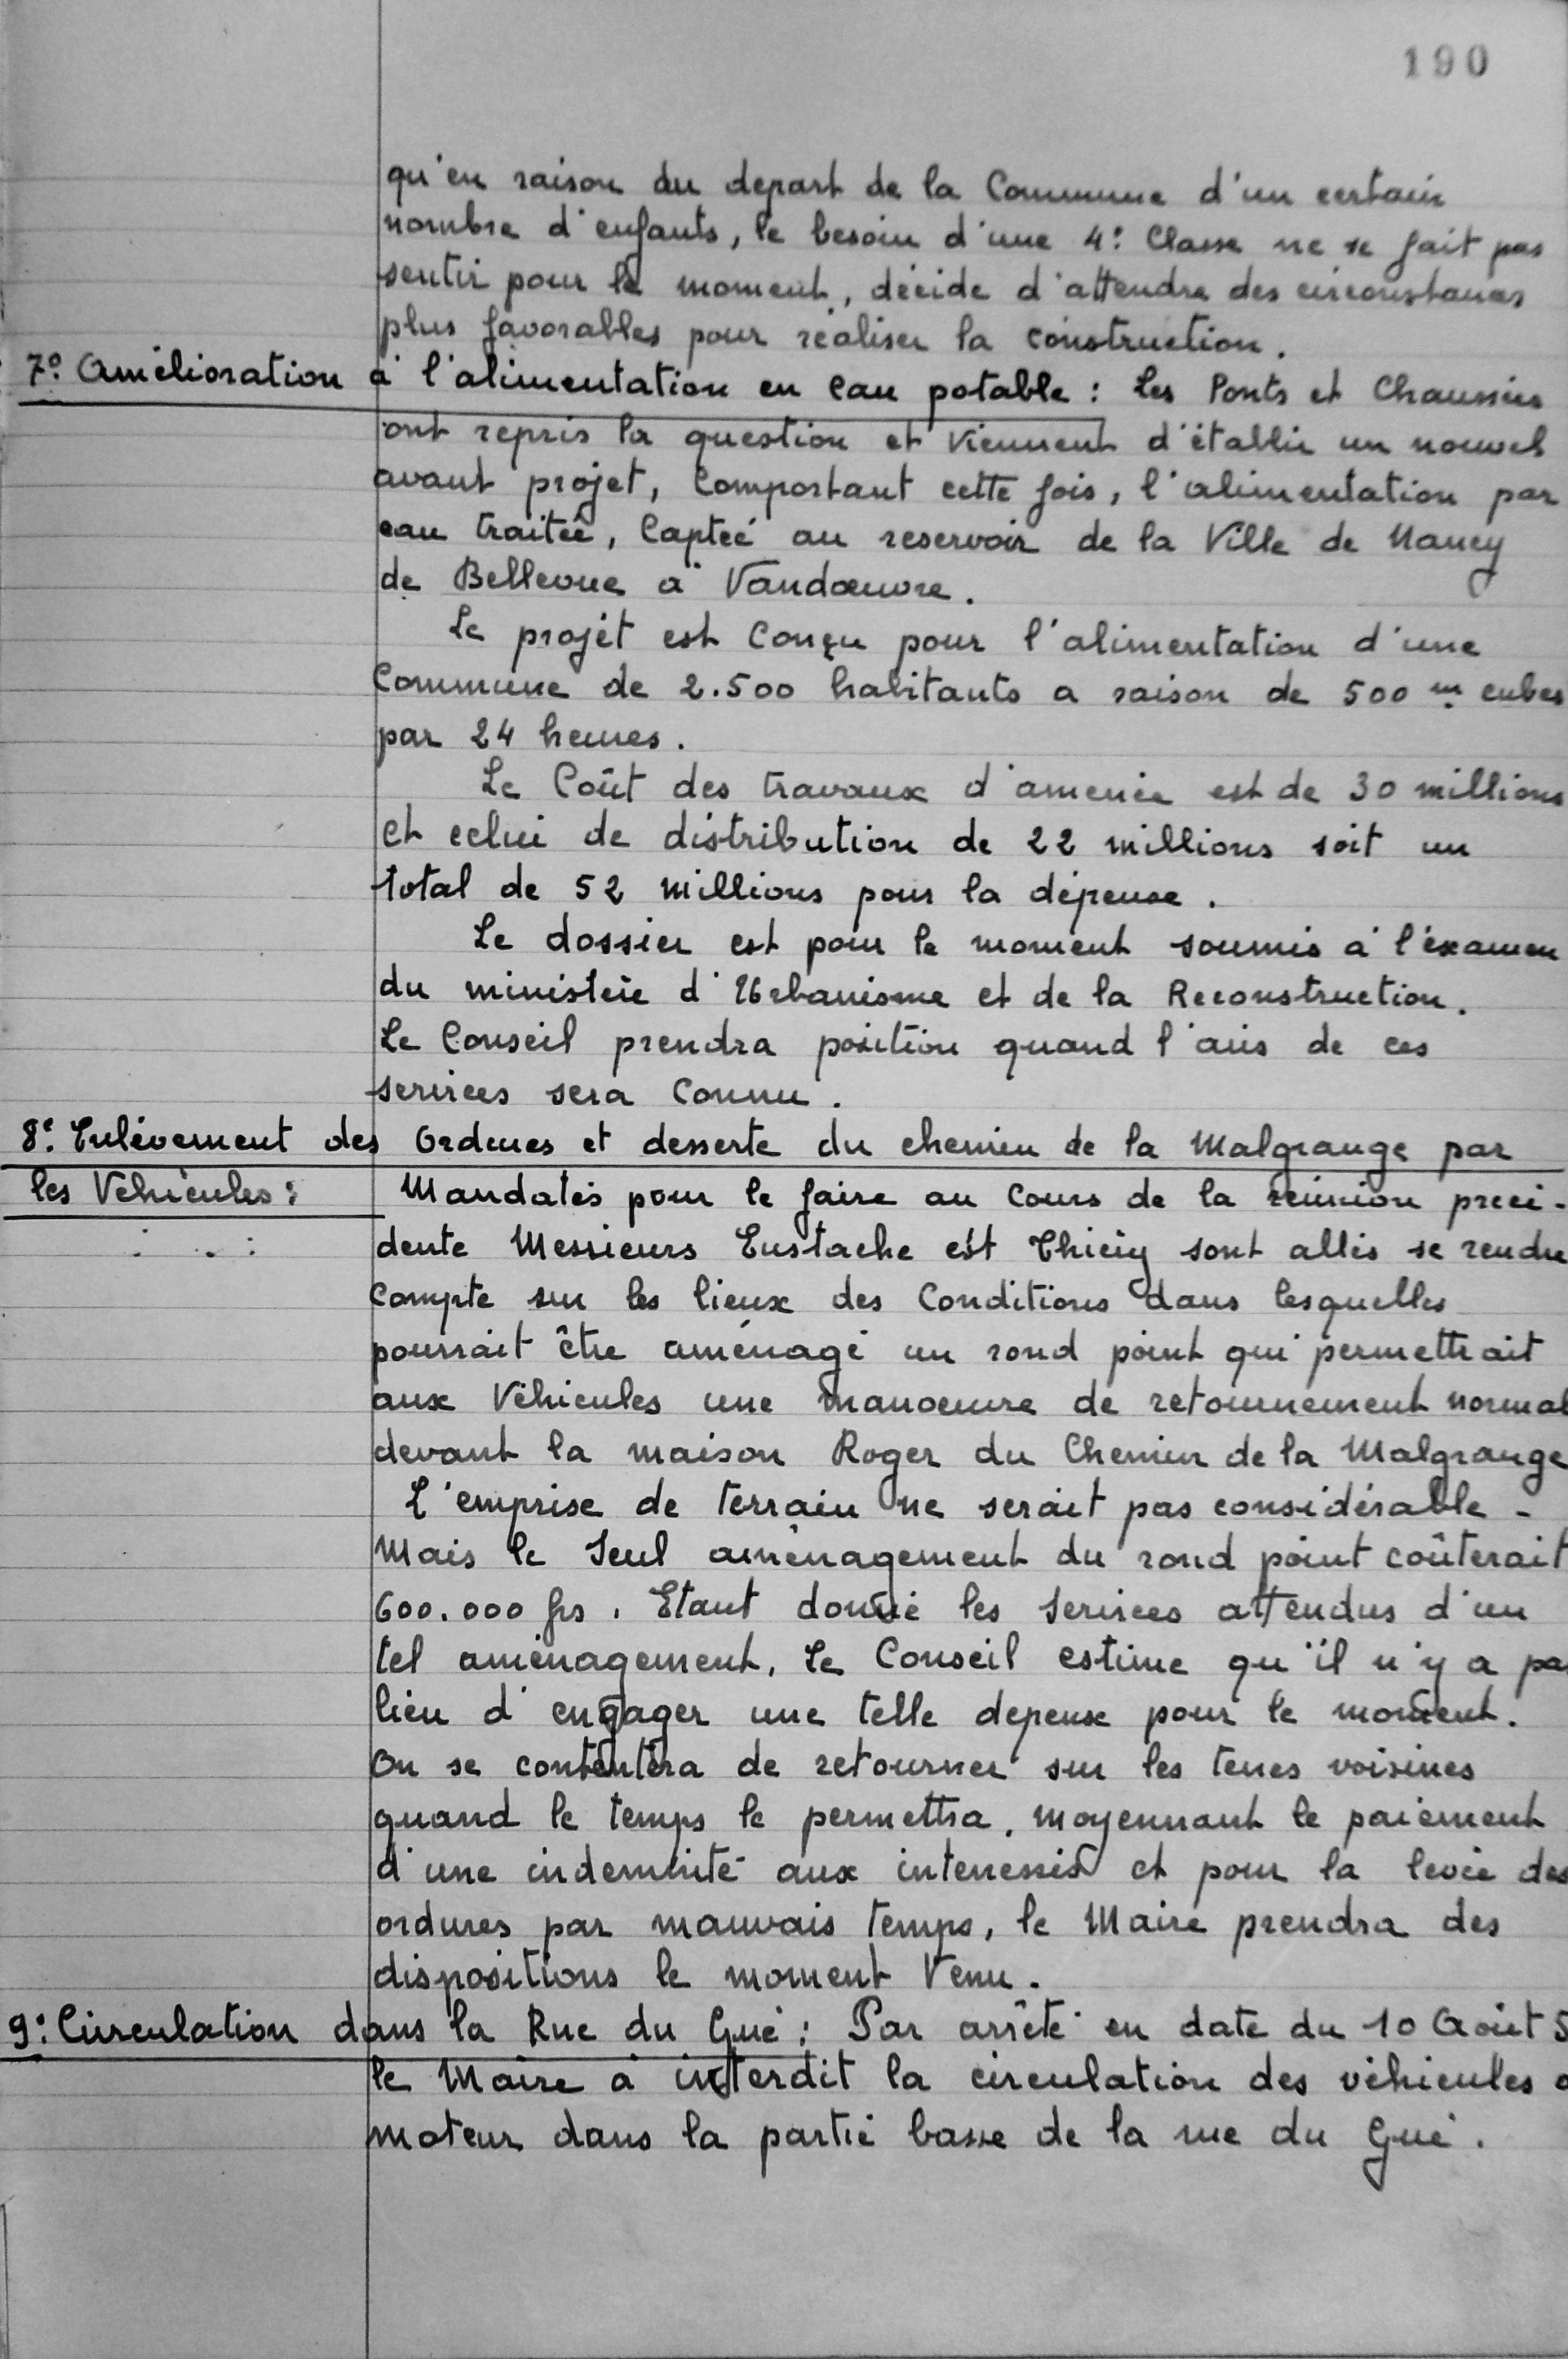 190
qu'en raison du depart de la Commune d'un certain
nombre d'enfants, le besoin d'une 4e Classe ne se fait pas
sentir pour le moment, décide d'attendre des circonstances
plus favorables pour réaliser la construction.
7° Amélioration à l'alimentation en eau potable : Les Ponts et Chaussées
ont repris la question et viennent d'établir un nouvel
avant projet, Comportant cette fois, l'alimentation par
eau traitée, Captée au reservoir de la Ville de Nancy
de Bellevue à Vandœuvre.
Le projet est Conçu pour l'alimentation d'une
Commune de 2.500 habitants a raison de 500 m cubes
par 24 heures.
Le Coût des travaux d'amenée est de 30 millions
et celui de distribution de 22 millions soit un
total de 52 millions pour la dépense.
Le dossier est pour le moment soumis à l'éxamen
du ministère d'Urbanisme et de la Reconstruction.
Le Conseil prendra position quand l'avis de ces
services sera Connu.
8° Enlèvement des Ordures et desserte du chemin de la Malgrange par
les Véhicules : Mandatés pour le faire au Cours de la réunion précé-
dente Messieurs Eustache et Thiéry sont allés se rendre
Compte sur les lieux des Conditions dans lesquelles
pourrait être aménagé un rond point qui permettrait
aux Véhicules une manoeuvre de retournement normal
devant la maison Roger du Chemin de la Malgrange
L'emprise de terrain ne serait pas considérable -
Mais le Seul aménagement du rond point coûterait
600.000 frs. Etant donné les Services attendus d'un
tel aménagement, Le Conseil estime qu'il n'y a pa
lieu d'engager une telle depense pour le moment.
On se contentera de retourner sur les terres voisines
quand le temps le permettra, moyennant le paiement
d'une indemnité aux interessés et pour la levée des
ordures par mauvais temps, le Maire prendra des
dispositions le moment Venu.
9° Circulation dans la Rue du Gué : Par arrêté en date du 10 Août 5
le Maire à interdit la circulation des véhicules a
moteur dans la partie basse de la rue du Gué.